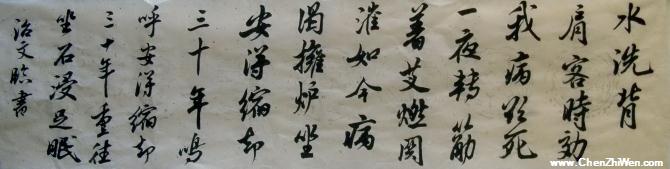 水洗背
肩客時効
我病欲死
一夜轉筋
著艾燃
灌如今病
渴擁炉坐
安得縮却
三十年嗚
呼安得縮却
三十年重往
坐石浸足眠
治文書
www.ChenZhiWen.com